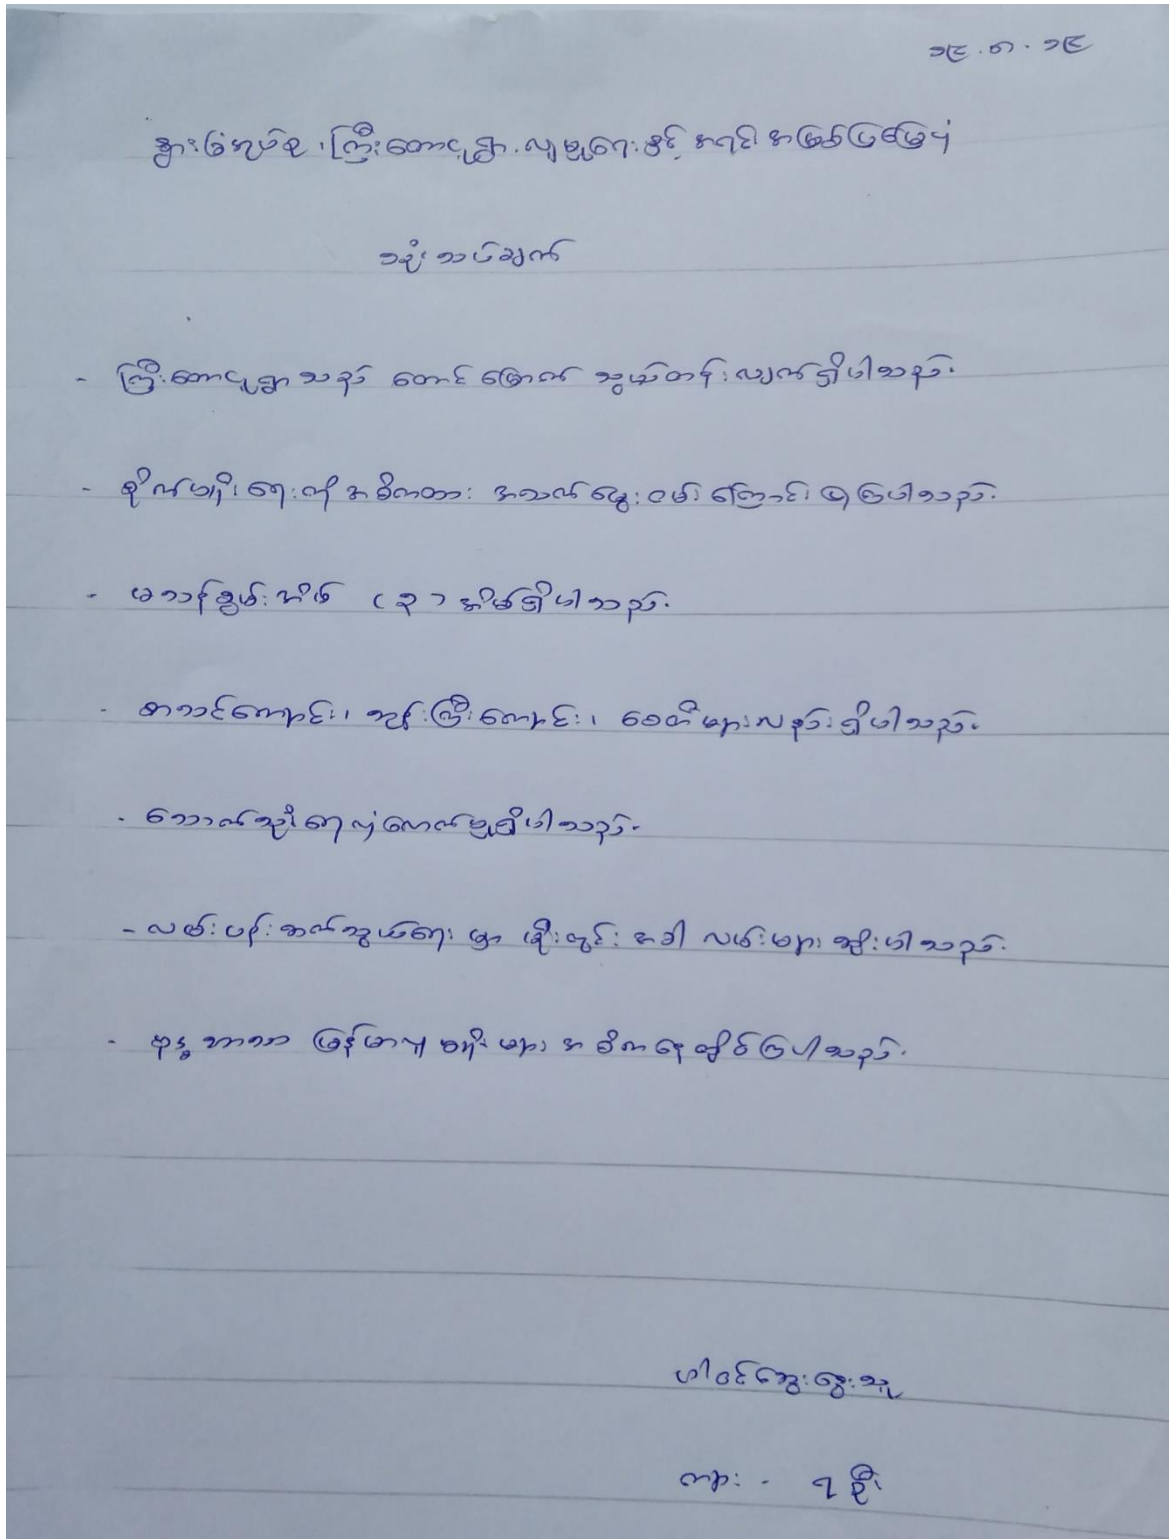 ၁၄.၈.၁၄
နွားခြံအုပ်စု၊ ကြီးတောငူရွာ လူမှုရေးနှင့် အရင်းအမြစ်ပြမြေပုံ
သုံးသပ်ချက်
- ကြီးတောငူရွာသည် တောင်မြောက် သွယ်တန်းလျက်ရှိပါသည်.
- စိုက်ပျိုးရေးကိုအဓိကထား အသက်မွေးဝမ်းကြောင်းပြုကြပါသည်.
- မသန်စွမ်းအိမ် (၃) အိမ်ရှိပါသည်.
- စာသင်ကျောင်း၊ ဘုန်းကြီးကျောင်း၊ စေတီများလည်းရှိပါသည်.
- သောက်သုံးရေလုံလောက်မှုရှိပါသည်.
- လမ်းပန်းဆက်သွယ်ရေးမှာ မိုးတွင်းအခါ လမ်းများဆိုးပါသည်.
- ဗုဒ္ဓဘာသာ မြန်မာလူမျိုးများ အဓိကနေထိုင်ကြပါသည်.
ပါဝင်ဆွေးနွေးသူ
ကျား - ၇ ဦး